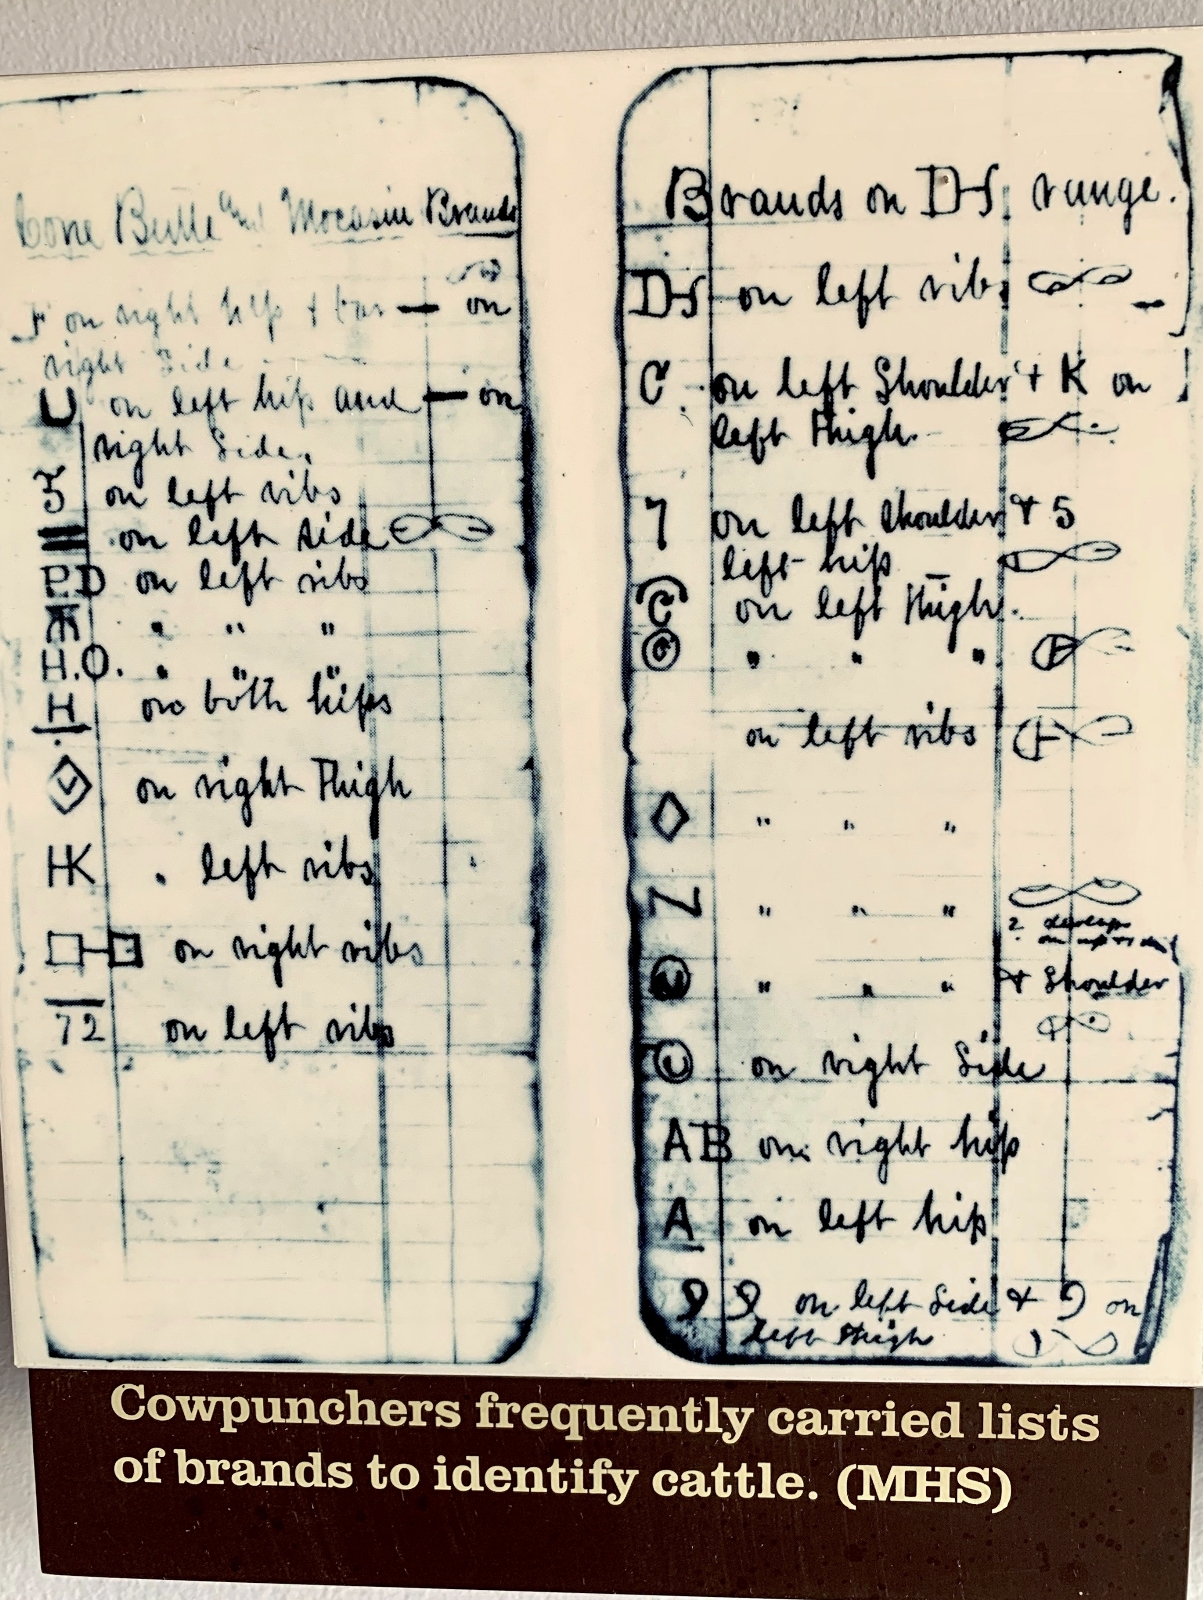 Cone Butte and Mocasin Brands
F on right hip & bar — on
right Side
U on left hip and — on
right Side.
on left ribs
on left side
P.D on left ribs
" " "
H.O. " " "
H on both hips
on right Thigh
HK " left ribs
on right ribs
72 on left ribs
Brands on DHS range.
DHS on left rib
C on left Shoulder & K on
left Thigh.
7 on left shoulder & 5
left hip
C on left Thigh.
" " "
on left ribs
◇ " " "
Z " " "
2
" " " & Shoulder
on right Side
AB on right hip
A on left hip
9 9 on left Side & 9 on
left thigh
Cowpunchers frequently carried lists
of brands to identify cattle. (MHS)